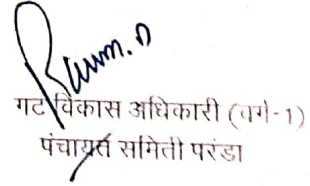 गट विकास अधिकारी (वर्ग-1)
पंचायत समिती परंडा